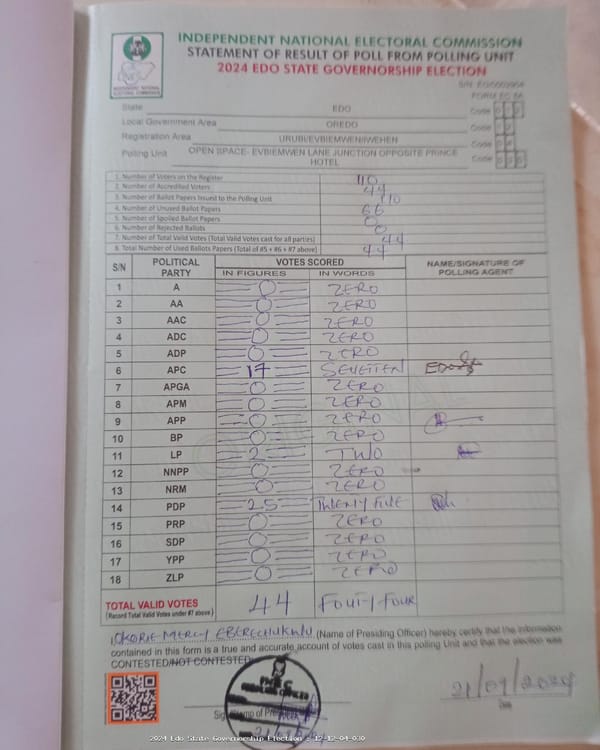 INDEPENDENT NATIONAL ELECTORAL COMMISSION
STATEMENT OF RESULT OF POLL FROM POLLING UNIT
2024 EDO STATE GOVERNORSHIP ELECTION
FORM EC 8A
State EDO Code
Local Government Area OREDO Code
Registration Area URUBI/EVBIEMWEN/IWEHEN Code
Polling Unit OPEN SPACE- EVBIEMWEN LANE JUNCTION OPPOSITE PRINCE HOTEL Code
1. Number of Voters on the Register 110
2. Number of Accredited Voters 44
3. Number of Ballot Papers Issued to the Polling Unit 110
4. Number of Unused Ballot Papers 66
5. Number of Spoiled Ballot Papers 0
6. Number of Rejected Ballots 0
7. Number of Total Valid Votes (Total Valid Votes cast for all parties) 44
8. Total Number of Used Ballots Papers (Total of #5 + #6 + #7 above) 44
S/N POLITICAL PARTY VOTES SCORED NAME/SIGNATURE OF POLLING AGENT
IN FIGURES IN WORDS
1 A 0 ZERO
2 AA 0 ZERO
3 AAC 0 ZERO
4 ADC 0 ZERO
5 ADP 0 ZERO
6 APC 17 SEVETTEN
7 APGA 0 ZERO
8 APM 0 ZERO
9 APP 0 ZERO
10 BP 0 ZERO
11 LP 2 TWO
12 NNPP 0 ZERO
13 NRM 0 ZERO
14 PDP 25 TWENTY FIVE
15 PRP 0 ZERO
16 SDP 0 ZERO
17 YPP 0 ZERO
18 ZLP 0 ZERO
TOTAL VALID VOTES 44 FOUTY FOUR
(Record Total Valid Votes under #7 above)
I, OKORIE MERCY EBERECHUKWU (Name of Presiding Officer) hereby certify that the information
contained in this form is a true and accurate account of votes cast in this polling Unit and that the election was
CONTESTED/NOT CONTESTED
21/09/2024
Date
2024 Edo State Governorship Election - 12-12-04-030